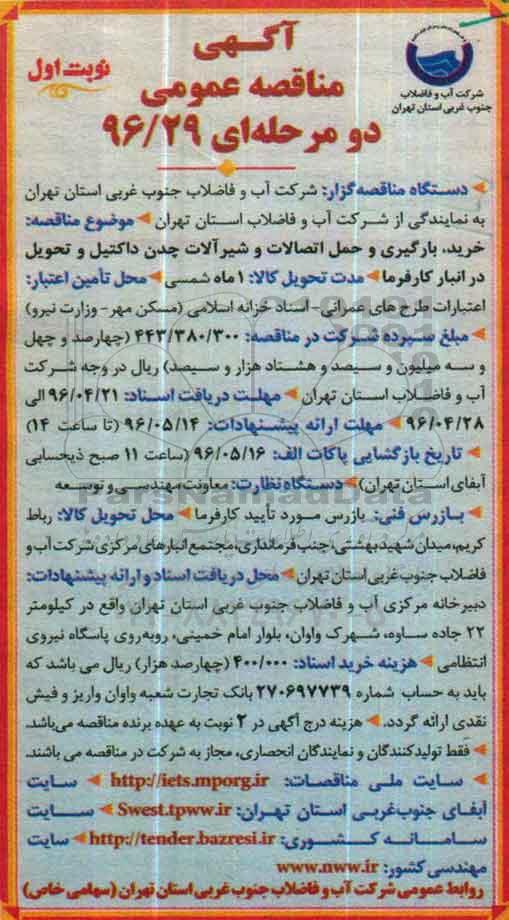 شرکت آب و فاضلاب
جنوب غربی استان تهران
نوبت اول
آگهی
مناقصه عمومی
دو مرحله‌ای ۹۶/۲۹
دستگاه مناقصه‌گزار: شرکت آب و فاضلاب جنوب غربی استان تهران
به نمایندگی از شرکت آب و فاضلاب استان تهران موضوع مناقصه:
خرید، بارگیری و حمل اتصالات و شیرآلات چدن داکتیل و تحویل
در انبار کارفرما مدت تحویل کالا: ۱ ماه شمسی محل تأمین اعتبار:
اعتبارات طرح های عمرانی-اسناد خزانه اسلامی (مسکن مهر- وزارت نیرو)
مبلغ سپرده شرکت در مناقصه: ۴۴۳/۳۸۰/۳۰۰ (چهارصد و چهل
و سه میلیون و سیصد و هشتاد هزار و سیصد) ریال در وجه شرکت
آب و فاضلاب استان تهران مهلت دریافت اسناد: ۹۶/۰۴/۲۱ الی
۹۶/۰۴/۲۸ مهلت ارائه پیشنهادات: ۹۶/۰۵/۱۴ (تا ساعت ۱۴)
تاریخ بازگشایی پاکات الف: ۹۶/۰۵/۱۶ (ساعت ۱۱ صبح ذیحسابی
آبفای استان تهران) دستگاه نظارت: معاونت مهندسی و توسعه
بازرس فنی: بازرس مورد تأیید کارفرما محل تحویل کالا: رباط
کریم، میدان شهید بهشتی، جنب فرمانداری، مجتمع انبارهای مرکزی شرکت آب و
فاضلاب جنوب غربی استان تهران محل دریافت اسناد و ارائه پیشنهادات:
دبیرخانه مرکزی آب و فاضلاب جنوب غربی استان تهران واقع در کیلومتر
۲۲ جاده ساوه، شهرک واوان، بلوار امام خمینی، روبه‌روی پاسگاه نیروی
انتظامی هزینه خرید اسناد: ۴۰۰/۰۰۰ (چهارصد هزار) ریال می باشد که
باید به حساب شماره ۲۷۰۶۹۷۷۳۹ بانک تجارت شعبه واوان واریز و فیش
نقدی ارائه گردد. هزینه درج آگهی در ۲ نوبت به عهده برنده مناقصه می‌باشد.
فقط تولیدکنندگان و نمایندگان انحصاری، مجاز به شرکت در مناقصه می باشند.
سایت ملی مناقصات: http://iets.mporg.ir سایت
آبفای جنوب‌غربی استان تهران: Swest.tpww.ir سایت
سامانه کشوری: http://tender.bazresi.ir سایت
مهندسی کشور: www.nww.ir
روابط عمومی شرکت آب و فاضلاب جنوب غربی استان تهران (سهامی خاص)
ParsNamadData